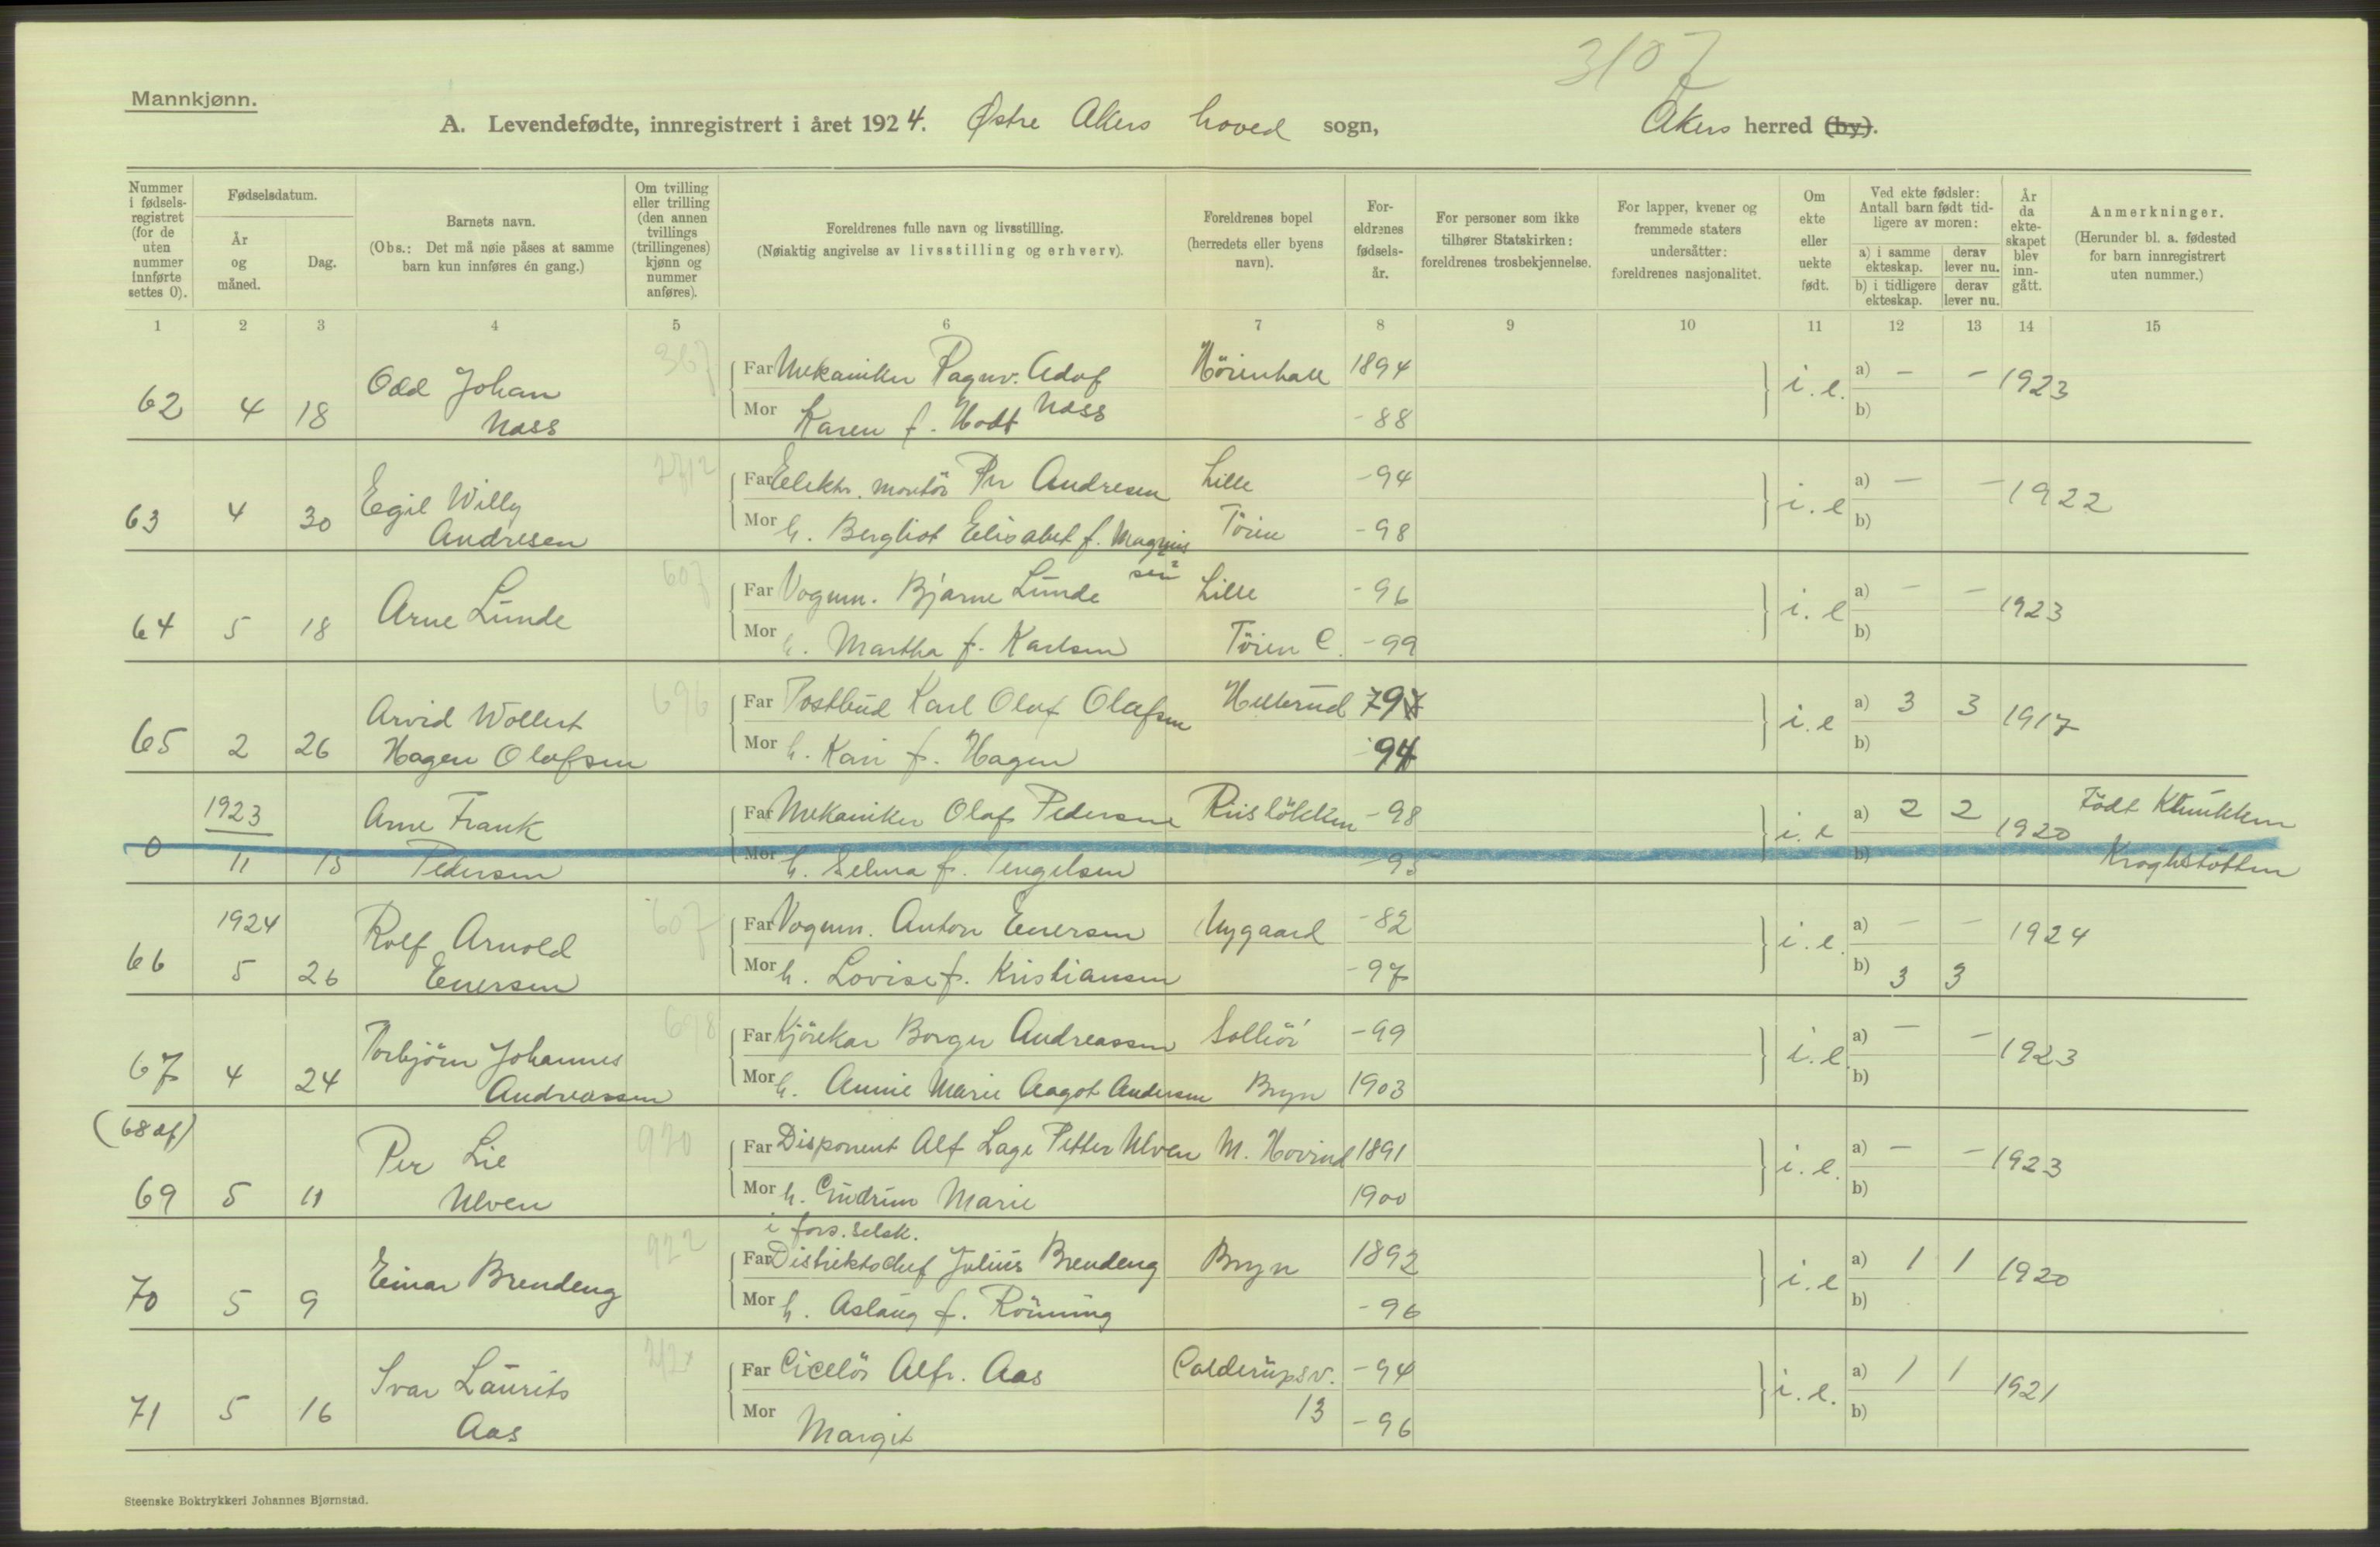 3107
Mannkjønn.
A. Levendefødte, innregistrert i året 1924. Østre Akers hoved sogn, Akers herred (by).
Nummer i fødsels-registret (for de uten nummer innførte settes 0).
Fødselsdatum.
År og måned.
Dag.
Barnets navn.
(Obs.: Det må nøie påses at samme barn kun innføres én gang.)
Om tvilling eller trilling (den annen tvillings (trillingenes) kjønn og nummer anføres).
Foreldrenes fulle navn og livsstilling.
(Nøiaktig angivelse av livsstilling og erhverv).
Foreldrenes bopel (herredets eller byens navn).
For-eldrenes fødsels-år.
For personer som ikke tilhører Statskirken: foreldrenes trosbekjennelse.
For lapper, kvener og fremmede staters undersåtter: foreldrenes nasjonalitet.
Om ekte eller uekte født.
Ved ekte fødsler: Antall barn født tid-ligere av moren:
a) i samme ekteskap.
derav lever nu.
b) i tidligere ekteskap.
derav lever nu.
År da ekte-skapet blev inn-gått.
Anmerkninger.
(Herunder bl. a. fødested for barn innregistrert uten nummer.)
1 2 3 4 5 6 7 8 9 10 11 12 13 14 15
367
Odd Johan Far Mekaniker Ragnv. Adof 1894 a) – –
62 4 18 Næss Mor Karen f. Hodt Næss -88 i. e. b) 1923
Egil Willy Far Elektr. montör Per Andresen Lille -94 a) – –
63 4 30 Andresen Mor h. Bergliot Elisabet f. Magnus Töien -98 i. e b) 1922
sen
607
Arne Lunde Far Vognm. Bjarne Lunde Lille -96 a) – –
64 5 18 Mor h. Martha f. Karlsen Töien C. -99 i. e b) 1923
696
Arvid Wollert Far Postbud Karl Olaf Olafsen Hellerud 797 a) 3 3
65 2 26 Hagen Olafsen Mor h. Kari f. Hagen -94 i. e b) 1917
1923 Arne Frank Far Mekaniker Olaf Pedersen Riislökken -98 a) 2 2 Födt Klinikken
0 11 Pedersen Mor h. Selma f. Tengelsen i. e b) 1920 Kroghstötten
607
1924 Rolf Arnold Far Vognm. Anton Enersen Nygaard -82 a) – –
66 5 26 Enersen Mor h. Lovise f. Kristiansen -97 i. e. b) 3 3 1924
698
Torbjörn Johannes Far Kjörekar Borger Andreassen -99 a) – –
67 4 24 Andreassen Mor h. Annie Marie Aagot Andersen Bryn 1903 i. e b) 1923
(68 af)
920
Per Lie Far Disponent Alf Lage Petter Ulven M. Hovind 1891 a) – –
69 5 11 Ulven Mor h. Gudrun Marie 1900 i. e. b) 1923
i fors. selsk.
922
Einar Brendeng Far Distriktschef Julius Brendeng Bryn 1892 a) 1 1
70 5 9 Mor h. Aslaug f. Rönning -96 i. e b) 1920
Ivar Laurits Far Cicelör Alfr. Aas Calderupsv. -94 a) 1 1
71 5 16 Aas Mor Margit 13 -96 i. e. b) 1921
Steenske Boktrykkeri Johannes Bjørnstad.